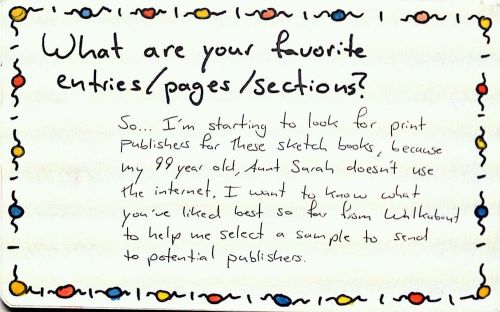 What are your favorite
entries/pages/sections?
So... I'm starting to look for print
publishers for these sketch books, because
my 99 year old, Aunt Sarah doesn't use
the internet. I want to know what
you've liked best so far from Walkabout
to help me select a sample to send
to potential publishers.